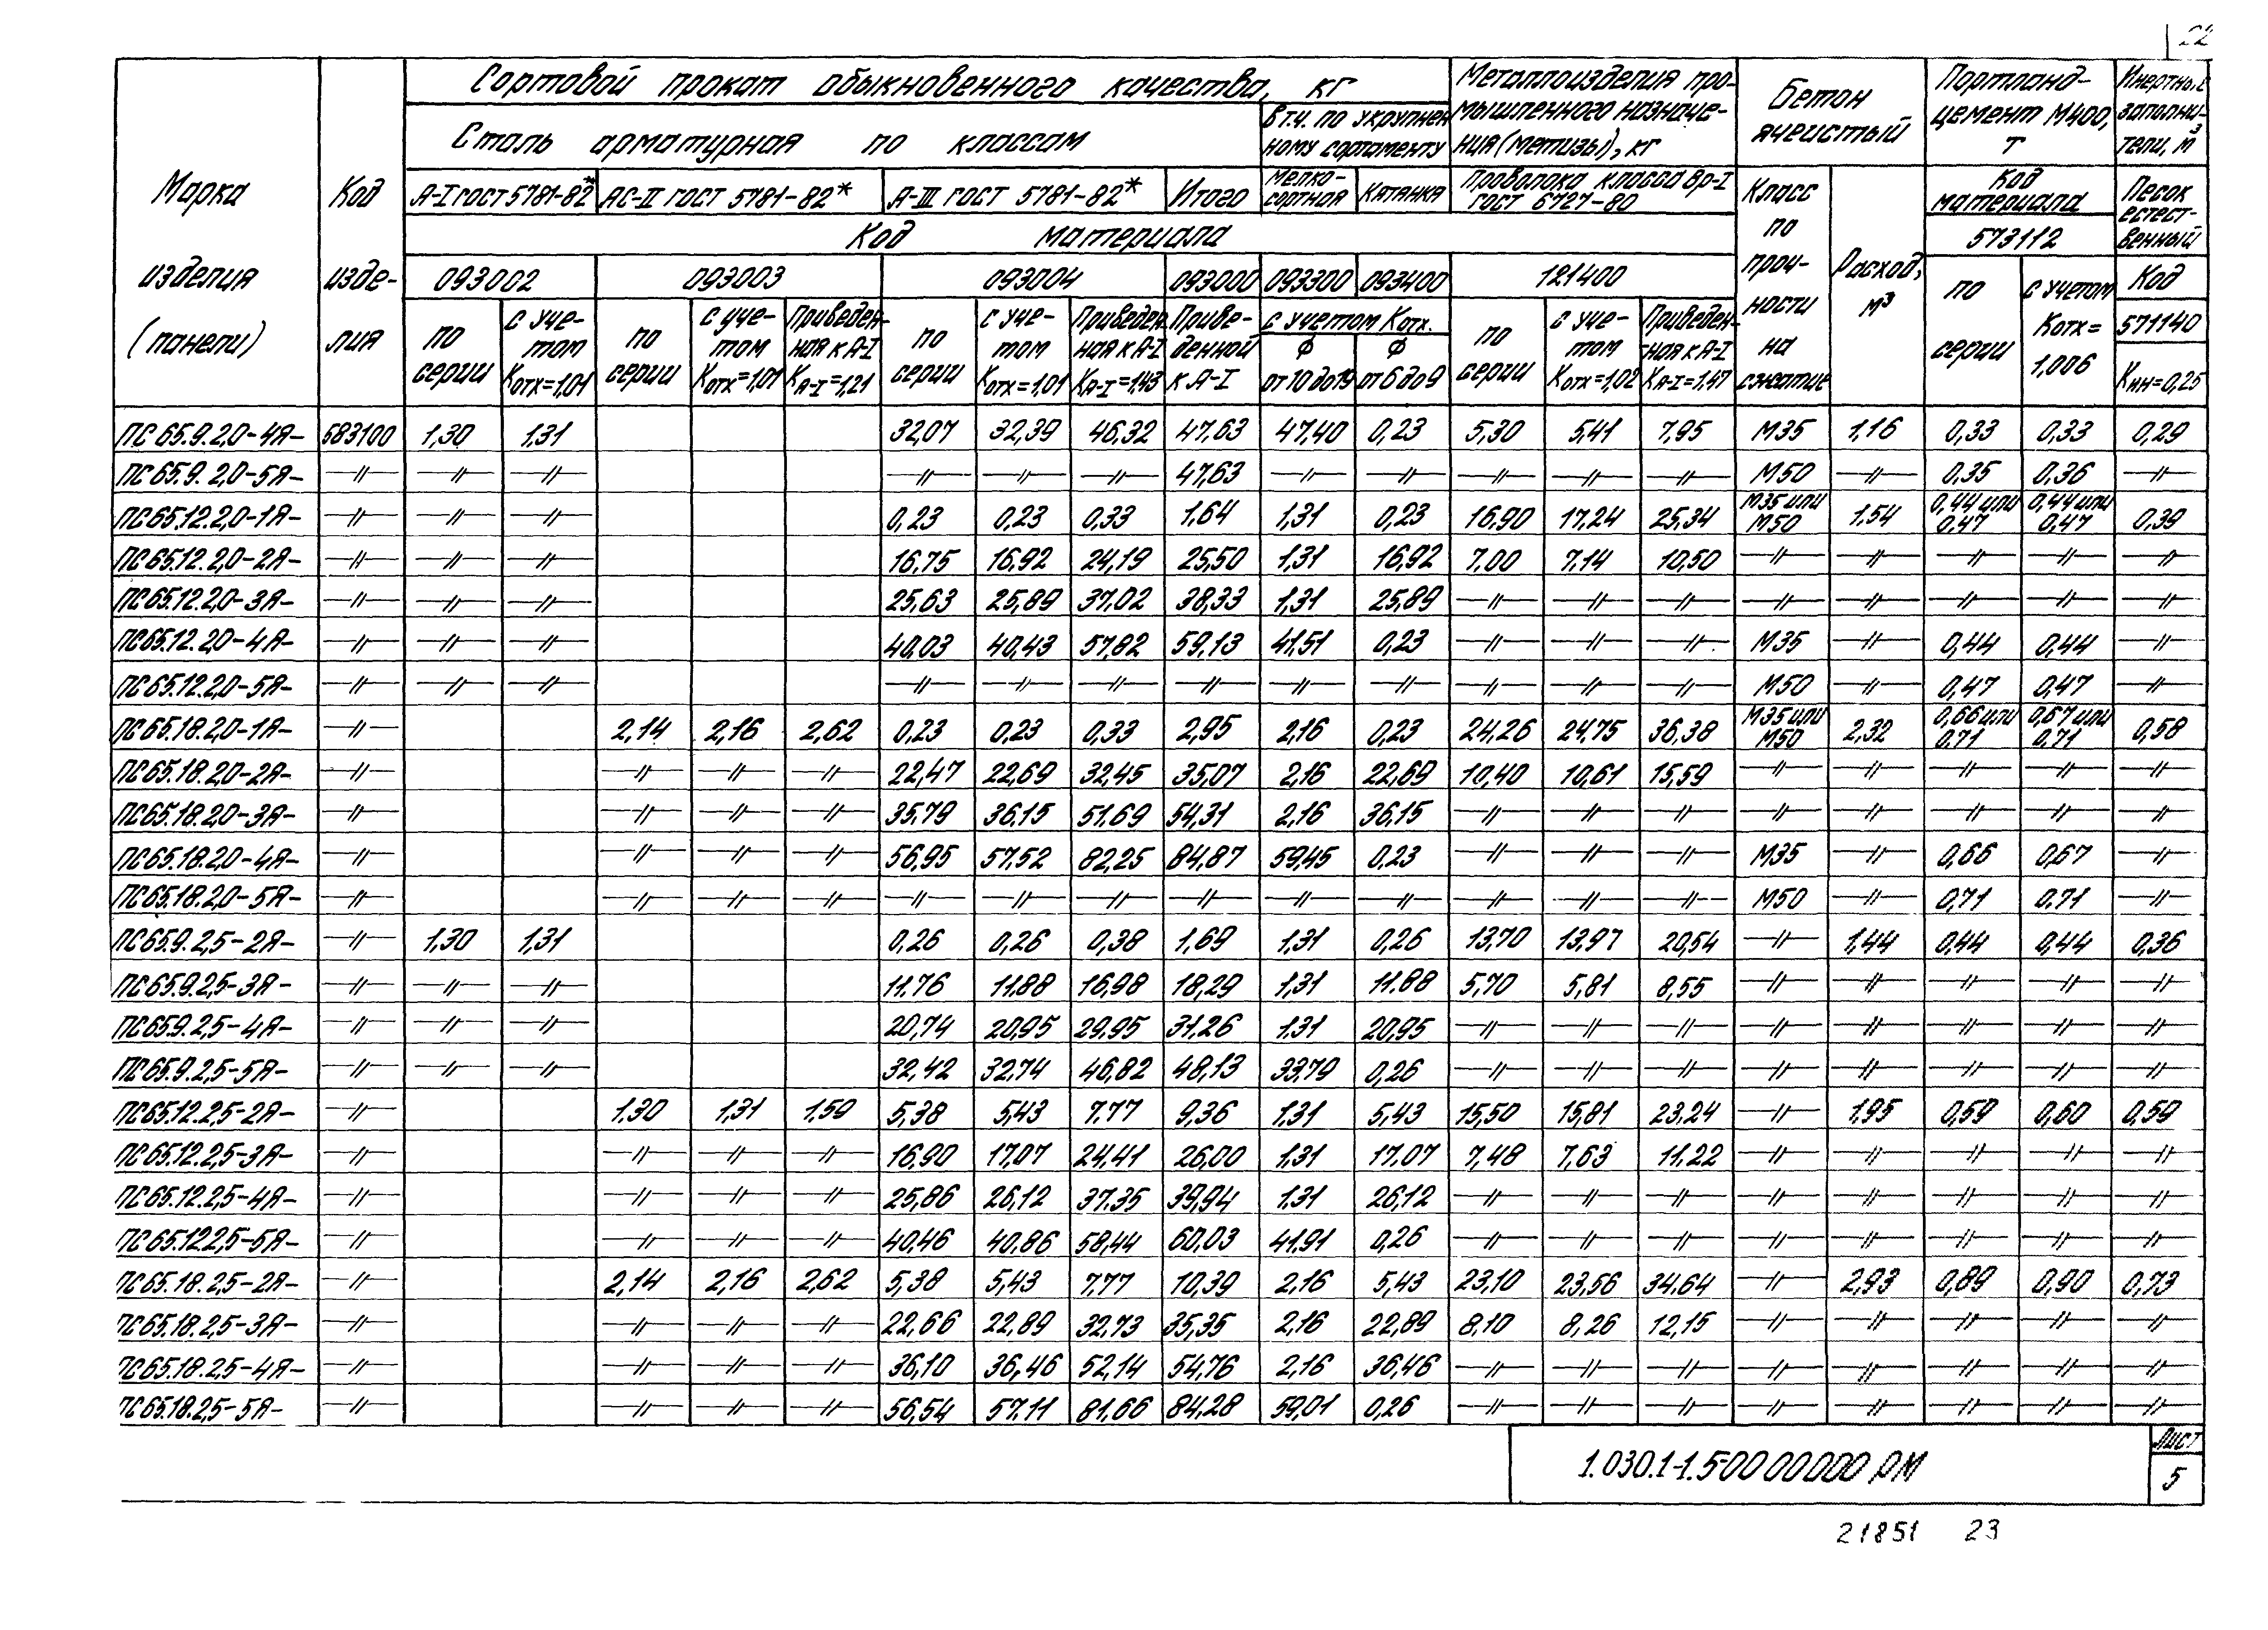 22
Сортовой прокат обыкновенного качества, кг
Металлоизделия про-
мышленного назначе-
ния (метизы), кг
Бетон
ячеистый
Портланд-
цемент М400,
т
Инертные
заполни-
тели, м³
Сталь арматурная по классам
в т.ч. по укрупнен
ному сортаменту
Марка
изделия
(панели)
Код
изде-
лия
А-I ГОСТ 5781-82* АС-II ГОСТ 5781-82* А-III ГОСТ 5781-82* Итого
Мелко-
сортная
Катанка
Проволока класса Вр-I
ГОСТ 6727-80
Класс
по
проч-
ности
на
сжатие
Расход,
м³
Код
материала
573112
Песок
естест-
венный
Код
571140
Кин=0,25
Код материала
093002 093003 093004 093000 093300 093400 121400
по
серии
с уче-
том
Котх=1,01
по
серии
с уче-
том
Котх=1,01
Приведен-
ная к А-I
КА-I=1,21
по
серии
с уче-
том
Котх=1,01
Приведен
ная к А-I
КА-I=1,43
Приве-
денной
к А-I
с учетом Котх.
Ф
от 10 до 19
Ф
от 6 до 9
по
серии
с уче-
том
Котх=1,02
Приведен-
ная к А-I
КА-I=1,47
по
серии
с учетом
Котх=
1,006
ПС 65.9.2,0-4Я- 583100 1,30 1,31 32,07 32,39 46,32 47,63 47,40 0,23 5,30 5,41 7,95 М35 1,16 0,33 0,33 0,29
ПС 65.9.2,0-5Я- -//- -//- -//- -//- -//- -//- 47,63 -//- -//- -//- -//- -//- М50 -//- 0,35 0,36 -//-
ПС 65.12.2,0-1Я- -//- -//- -//- 0,23 0,23 0,33 1,64 1,31 0,23 16,90 17,24 25,34 М35 или М50 1,54 0,44 или 0,47 0,44 или 0,47 0,39
ПС 65.12.2,0-2Я- -//- -//- -//- 16,75 16,92 24,19 25,50 1,31 16,92 7,00 7,14 10,50 -//- -//- -//- -//- -//-
ПС 65.12.2,0-3Я- -//- -//- -//- 25,63 25,89 37,02 38,33 1,31 25,89 -//- -//- -//- -//- -//- -//- -//- -//-
ПС 65.12.2,0-4Я- -//- -//- -//- 40,03 40,43 57,82 59,13 41,51 0,23 -//- -//- -//- М35 -//- 0,44 0,44 -//-
ПС 65.12.2,0-5Я- -//- -//- -//- -//- -//- -//- -//- -//- -//- -//- -//- -//- М50 -//- 0,47 0,47 -//-
ПС 65.18.2,0-1Я- -//- 2,14 2,16 2,62 0,23 0,23 0,33 2,95 2,16 0,23 24,26 24,75 36,38 М35 или М50 2,32 0,66 или 0,71 0,67 или 0,71 0,58
ПС 65.18.2,0-2Я- -//- -//- -//- -//- 22,47 22,69 32,45 35,07 2,16 22,69 10,40 10,61 15,59 -//- -//- -//- -//- -//-
ПС 65.18.2,0-3Я- -//- -//- -//- -//- 35,79 36,15 51,69 54,31 2,16 36,15 -//- -//- -//- -//- -//- -//- -//- -//-
ПС 65.18.2,0-4Я- -//- -//- -//- -//- 56,95 57,52 82,25 84,87 59,45 0,23 -//- -//- -//- М35 -//- 0,66 0,67 -//-
ПС 65.18.2,0-5Я- -//- -//- -//- -//- -//- -//- -//- -//- -//- -//- -//- -//- -//- М50 -//- 0,71 0,71 -//-
ПС 65.9.2,5-2Я- -//- 1,30 1,31 0,26 0,26 0,38 1,69 1,31 0,26 13,70 13,97 20,54 -//- 1,44 0,44 0,44 0,36
ПС 65.9.2,5-3Я- -//- -//- -//- 11,76 11,88 16,98 18,29 1,31 11,88 5,70 5,81 8,55 -//- -//- -//- -//- -//-
ПС 65.9.2,5-4Я- -//- -//- -//- 20,74 20,95 29,95 31,26 1,31 20,95 -//- -//- -//- -//- -//- -//- -//- -//-
ПС 65.9.2,5-5Я- -//- -//- -//- 32,42 32,74 46,82 48,13 33,79 0,26 -//- -//- -//- -//- -//- -//- -//- -//-
ПС 65.12.2,5-2Я- -//- 1,30 1,31 1,59 5,38 5,43 7,77 9,36 1,31 5,43 15,50 15,81 23,24 -//- 1,95 0,59 0,60 0,59
ПС 65.12.2,5-3Я- -//- -//- -//- -//- 16,90 17,07 24,41 26,00 1,31 17,07 7,48 7,63 11,22 -//- -//- -//- -//- -//-
ПС 65.12.2,5-4Я- -//- -//- -//- -//- 25,86 26,12 37,35 39,94 1,31 26,12 -//- -//- -//- -//- -//- -//- -//- -//-
ПС 65.12.2,5-5Я- -//- -//- -//- -//- 40,46 40,86 58,44 60,03 41,91 0,26 -//- -//- -//- -//- -//- -//- -//- -//-
ПС 65.18.2,5-2Я- -//- 2,14 2,16 2,62 5,38 5,43 7,77 10,39 2,16 5,43 23,10 23,56 34,64 -//- 2,93 0,89 0,90 0,73
ПС 65.18.2,5-3Я- -//- -//- -//- -//- 22,66 22,89 32,73 35,35 2,16 22,89 8,10 8,26 12,15 -//- -//- -//- -//- -//-
ПС 65.18.2,5-4Я- -//- -//- -//- -//- 36,10 36,46 52,14 54,76 2,16 36,46 -//- -//- -//- -//- -//- -//- -//- -//-
ПС 65.18.2,5-5Я- -//- -//- -//- -//- 56,54 57,11 81,66 84,28 59,01 0,26 -//- -//- -//- -//- -//- -//- -//- -//-
1.030.1-1.5-00 00 0000 РМ
Лист
5
21851 23